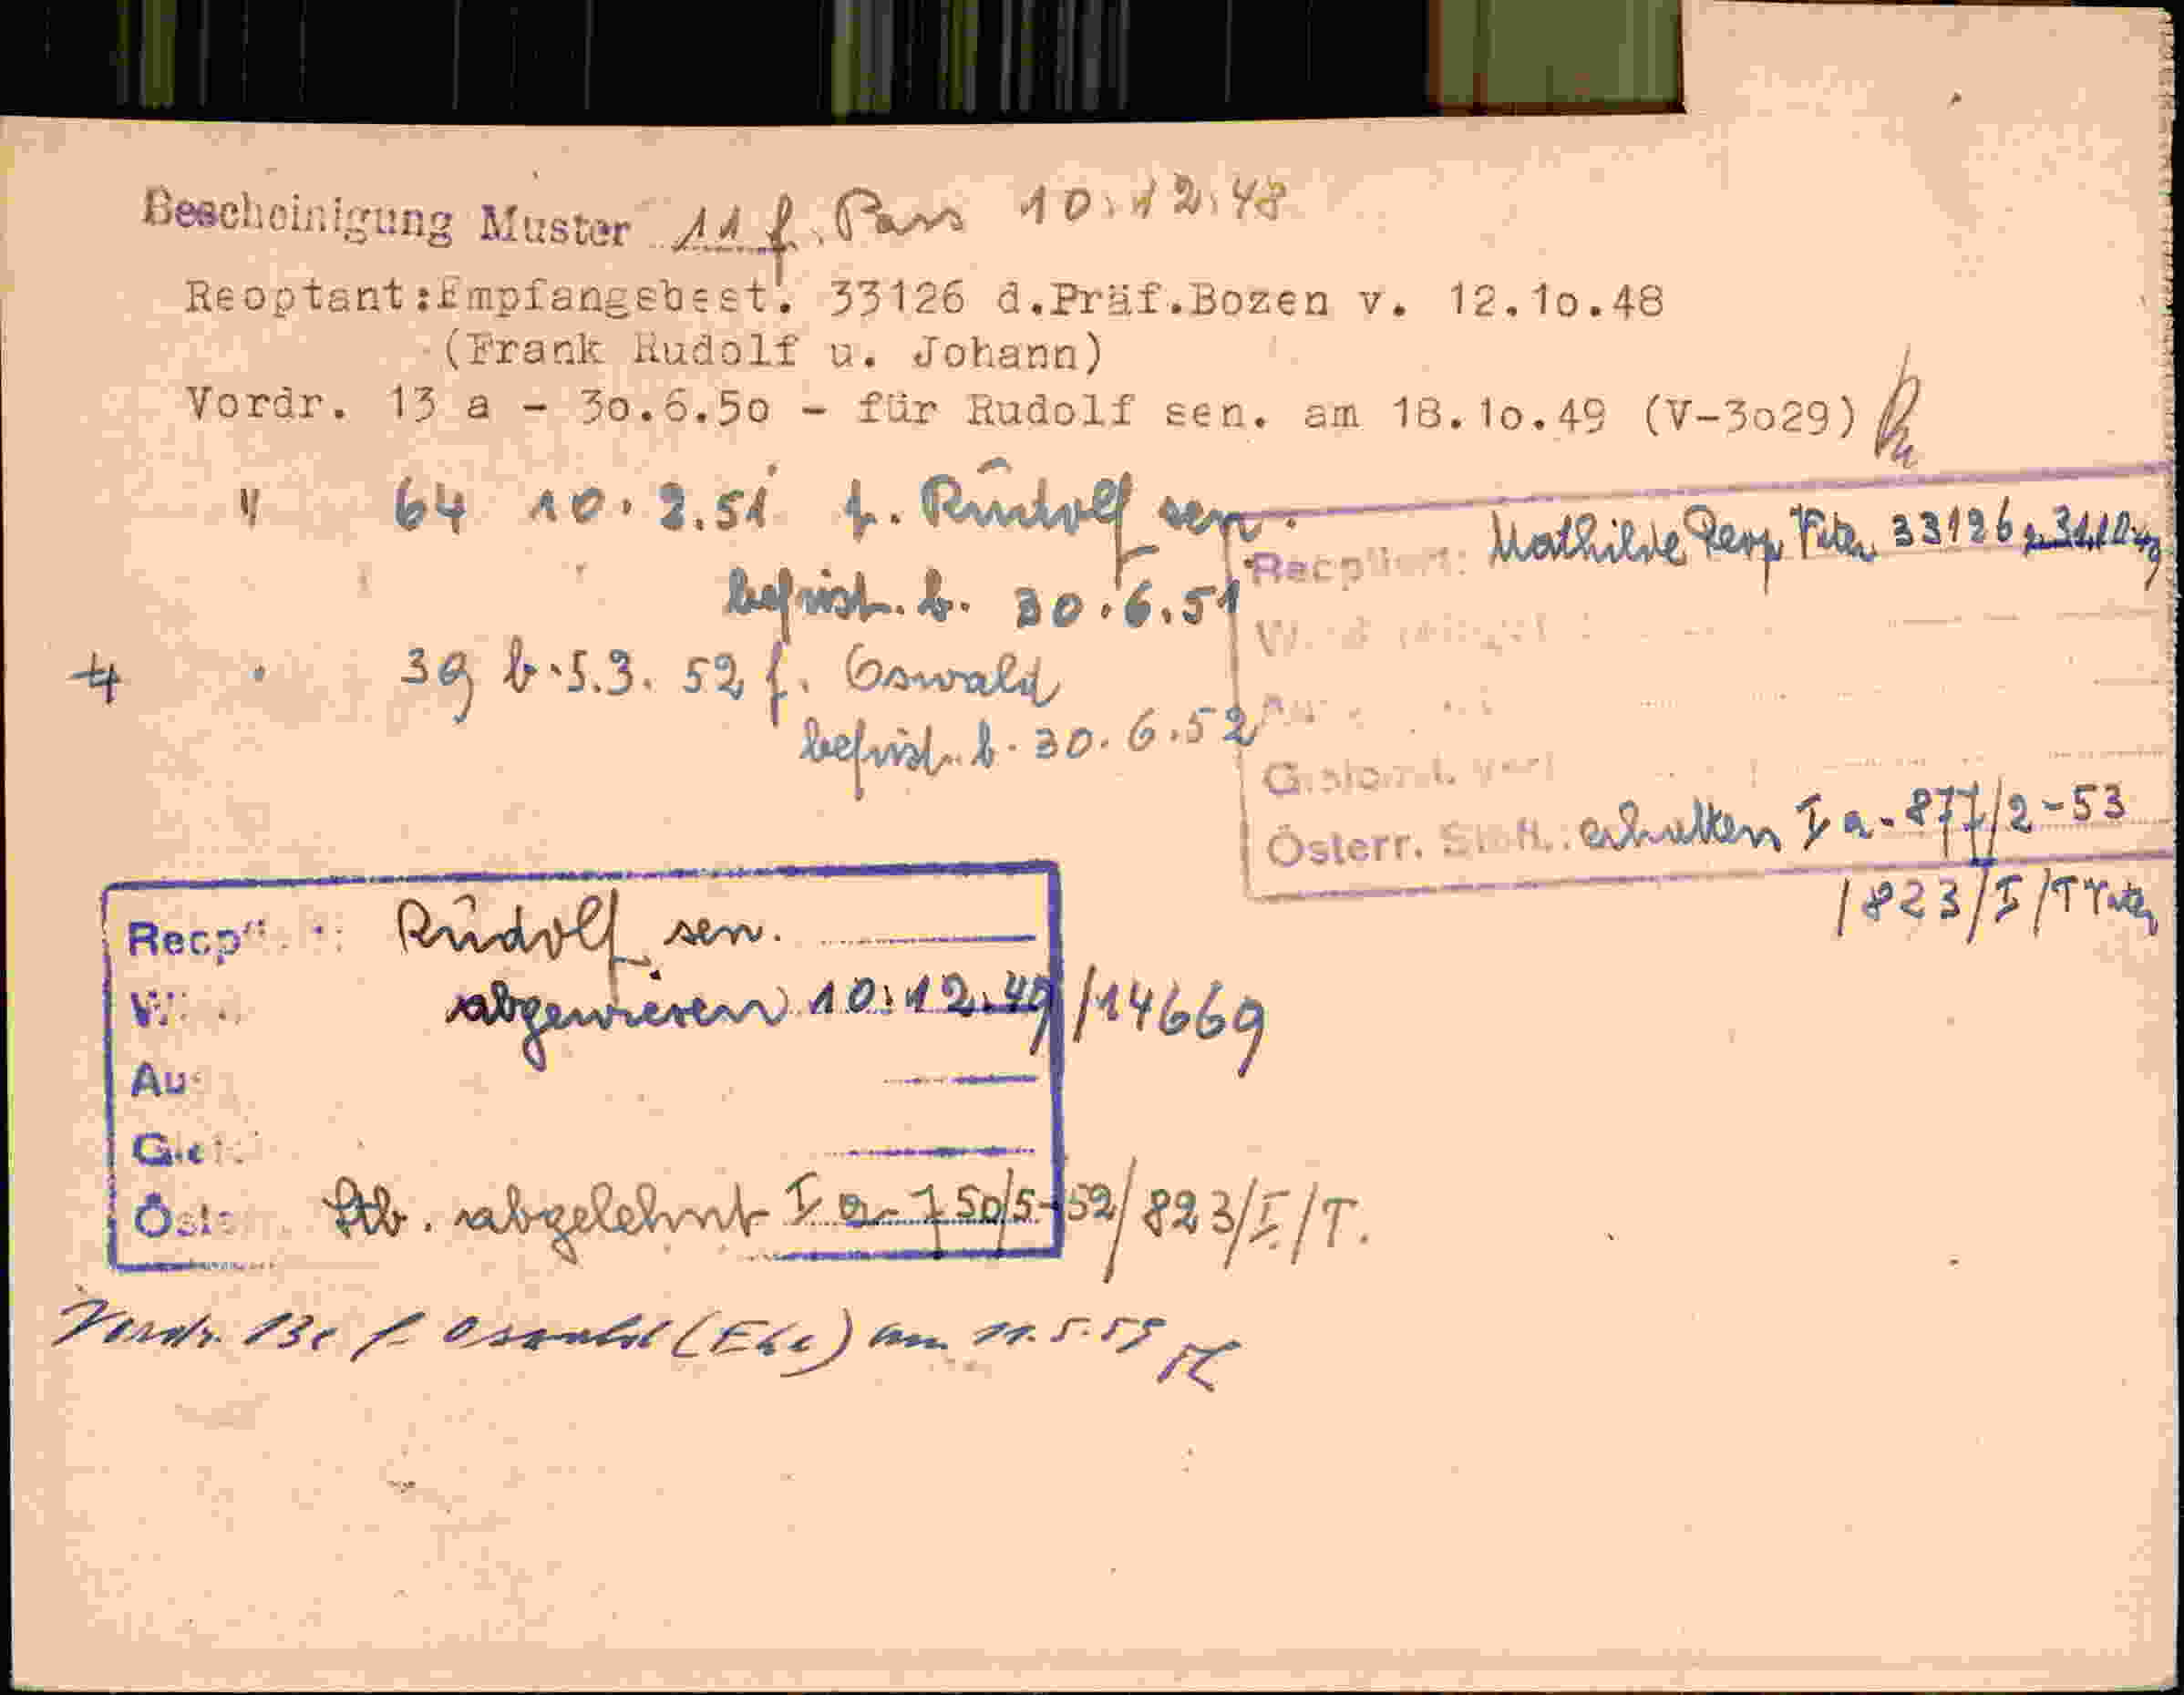 Bescheinigung Muster 11 f. Pass 10.12.48
Reoptant:Empfangsbest. 33126 d.Präf.Bozen v. 12.1o.48
(Frank Rudolf u. Johann)
Vordr. 13 a - 3o.6.5o - für Rudolf sen. am 18.1o.49 (V-3o29)
" 64 10.2.51 f. Rudolf sen.
befrist. b. 30.6.51
39 b. 5.3.52 f. Oswald
befrist. b. 30.6.52
Reoptiert: Mathilde 33126
Österr. Stb. erhalten I a-877/2-53
/823/I/T
Reoptiert: Rudolf sen.
abgewiesen 10.12.49/14669
Stb. abgelehnt I a-750/5-52/823/I/T.
Vordr. 13c f. Oswald (Ehe) am 11.5.55